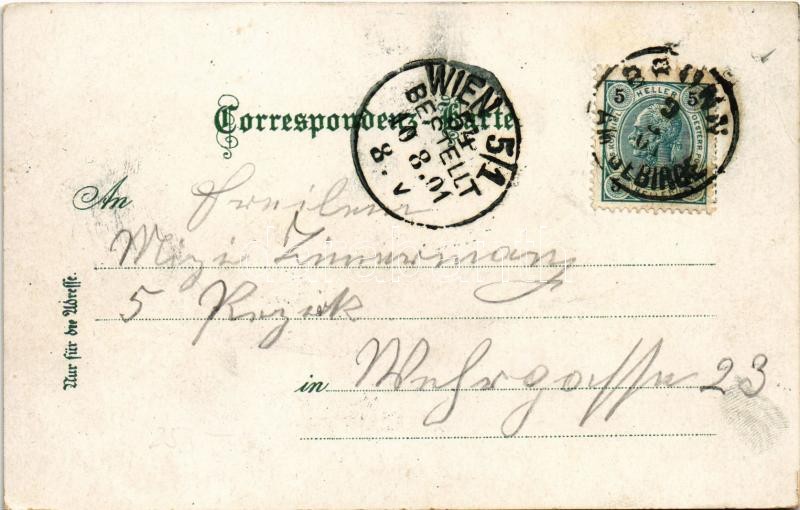 Correspondenz-Karte
WIEN 5/1
BESTELLT
10 8.01
8. V
5 HELLER 5
BRUNN
AM GEBIRGE
An Freilein
Mizi Zimermann
5 Bezirk
in Wehrgasse 23
Nur für die Adresse.